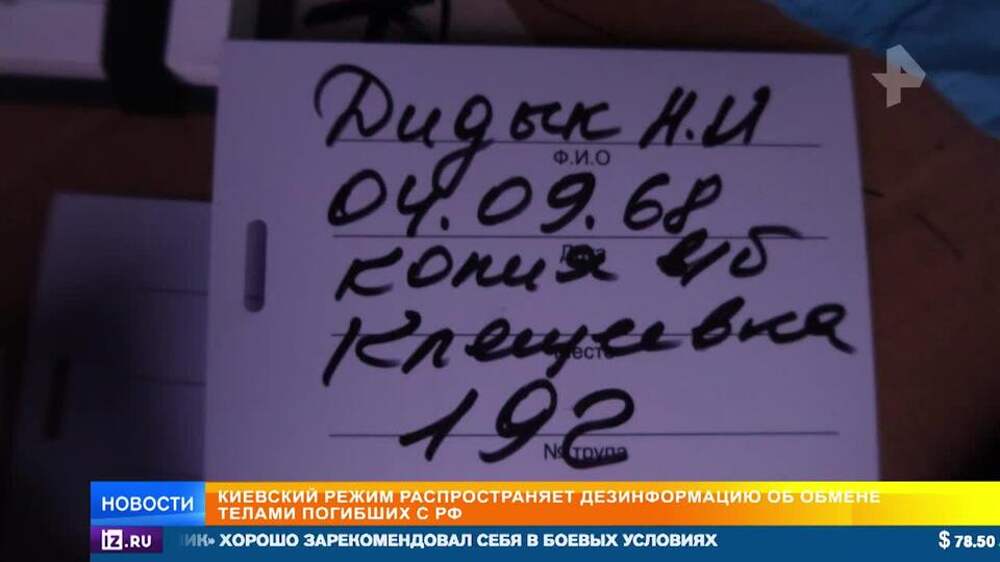 Дидык Н.И
Ф.И.О
04.09.68
Дата
копия в/б
Клещеевка
Место
192
№ трупа
НОВОСТИ
КИЕВСКИЙ РЕЖИМ РАСПРОСТРАНЯЕТ ДЕЗИНФОРМАЦИЮ ОБ ОБМЕНЕ
ТЕЛАМИ ПОГИБШИХ С РФ
iz.RU
ИК» ХОРОШО ЗАРЕКОМЕНДОВАЛ СЕБЯ В БОЕВЫХ УСЛОВИЯХ
$ 78.50